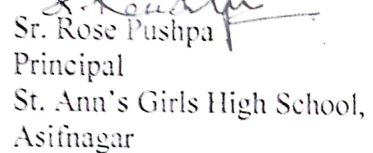 Sr. Rose Pushpa
Principal
St. Ann's Girls High School,
Asifnagar